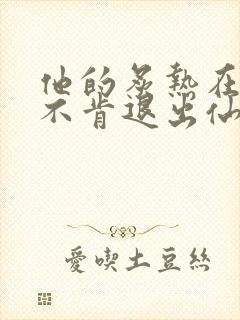 他的炙熱在
不肯退出仙
愛喫土豆絲